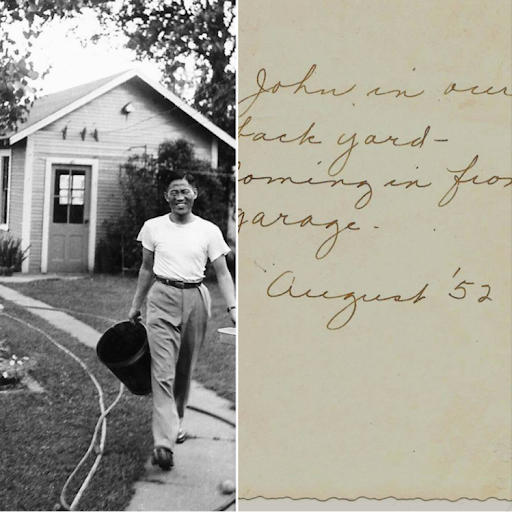 John in our
back yard-
coming in from
garage.
August '52